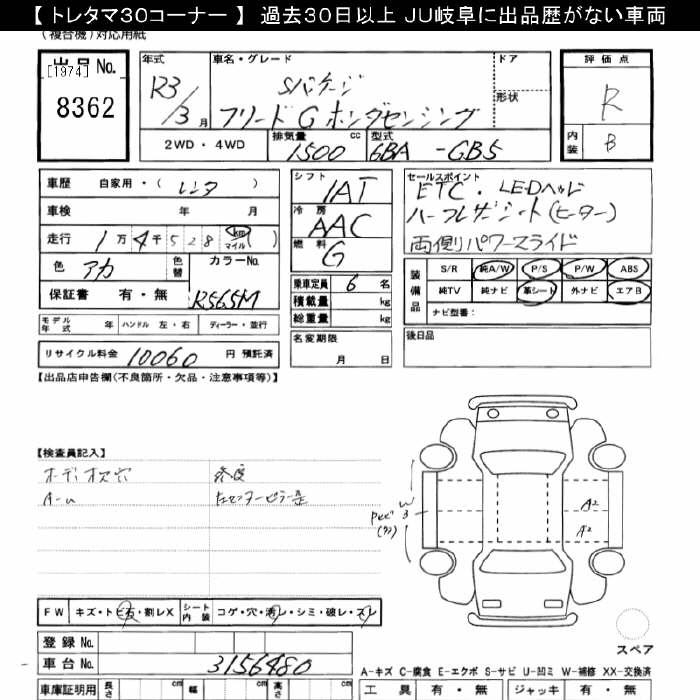 【 トレタマ30コーナー 】 過去30日以上 JU岐阜に出品歴がない車両
(複合機)対応用紙
出品 No.
[1974]
8362
年式
R3/3 月
車名・グレード
Sパケージ
フリード G ホンダセンシング
ドア
形状
評価点
R
内装
B
2WD ・ 4WD
排気量
1500 cc
型式
6BA -GB5
車歴 自家用・( レンタ )
車検 年 月
走行 1万4千528 km マイル ( )
色 アカ
色替
カラーNo.
R565M
保証書 有・無
モデル年式 年 ハンドル 左・右 ディーラー・並行
リサイクル料金 10060 円 預託済
シフト
IAT
冷房
AAC
燃料
G
乗車定員 6 名
積載量 kg
総重量 kg
名変期限
月 日
セールスポイント
ETC・LEDヘッド
ハーフレザーシート(ヒーター)
両側パワースライド
装備品
S/R 純A/W P/S P/W ABS
純TV 純ナビ 革シート 外ナビ エアB
ナビ型番:
後日品
【出品店申告欄(不良箇所・欠品・注意事項等)】
【検査員記入】
A-u
W3
A2
A2
FW キズ・トビ石・割レX シート内装 コゲ・穴・汚レ・シミ・破レ・スレ
登録 No.
車台 No. 3156480
スペア
A-キズ C-腐食 E-エクボ S-サビ U-凹ミ W-補修 XX-交換済
車庫証明用 長さ cm 幅 cm 高さ cm
工具 有・無 ジャッキ 有・無